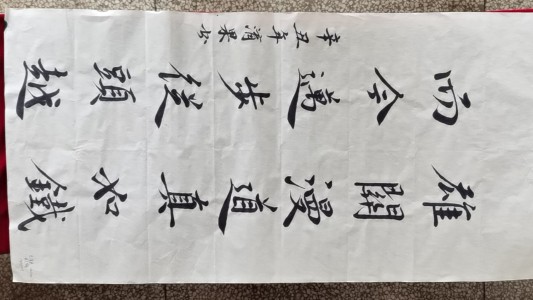 雄關漫道真如鐵
而今邁步從頭越
辛丑年